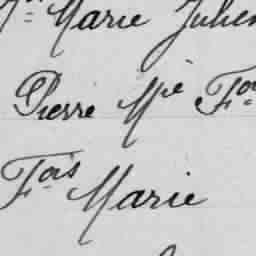 Marie Julien
Pierre Mie Fois
Fois Marie